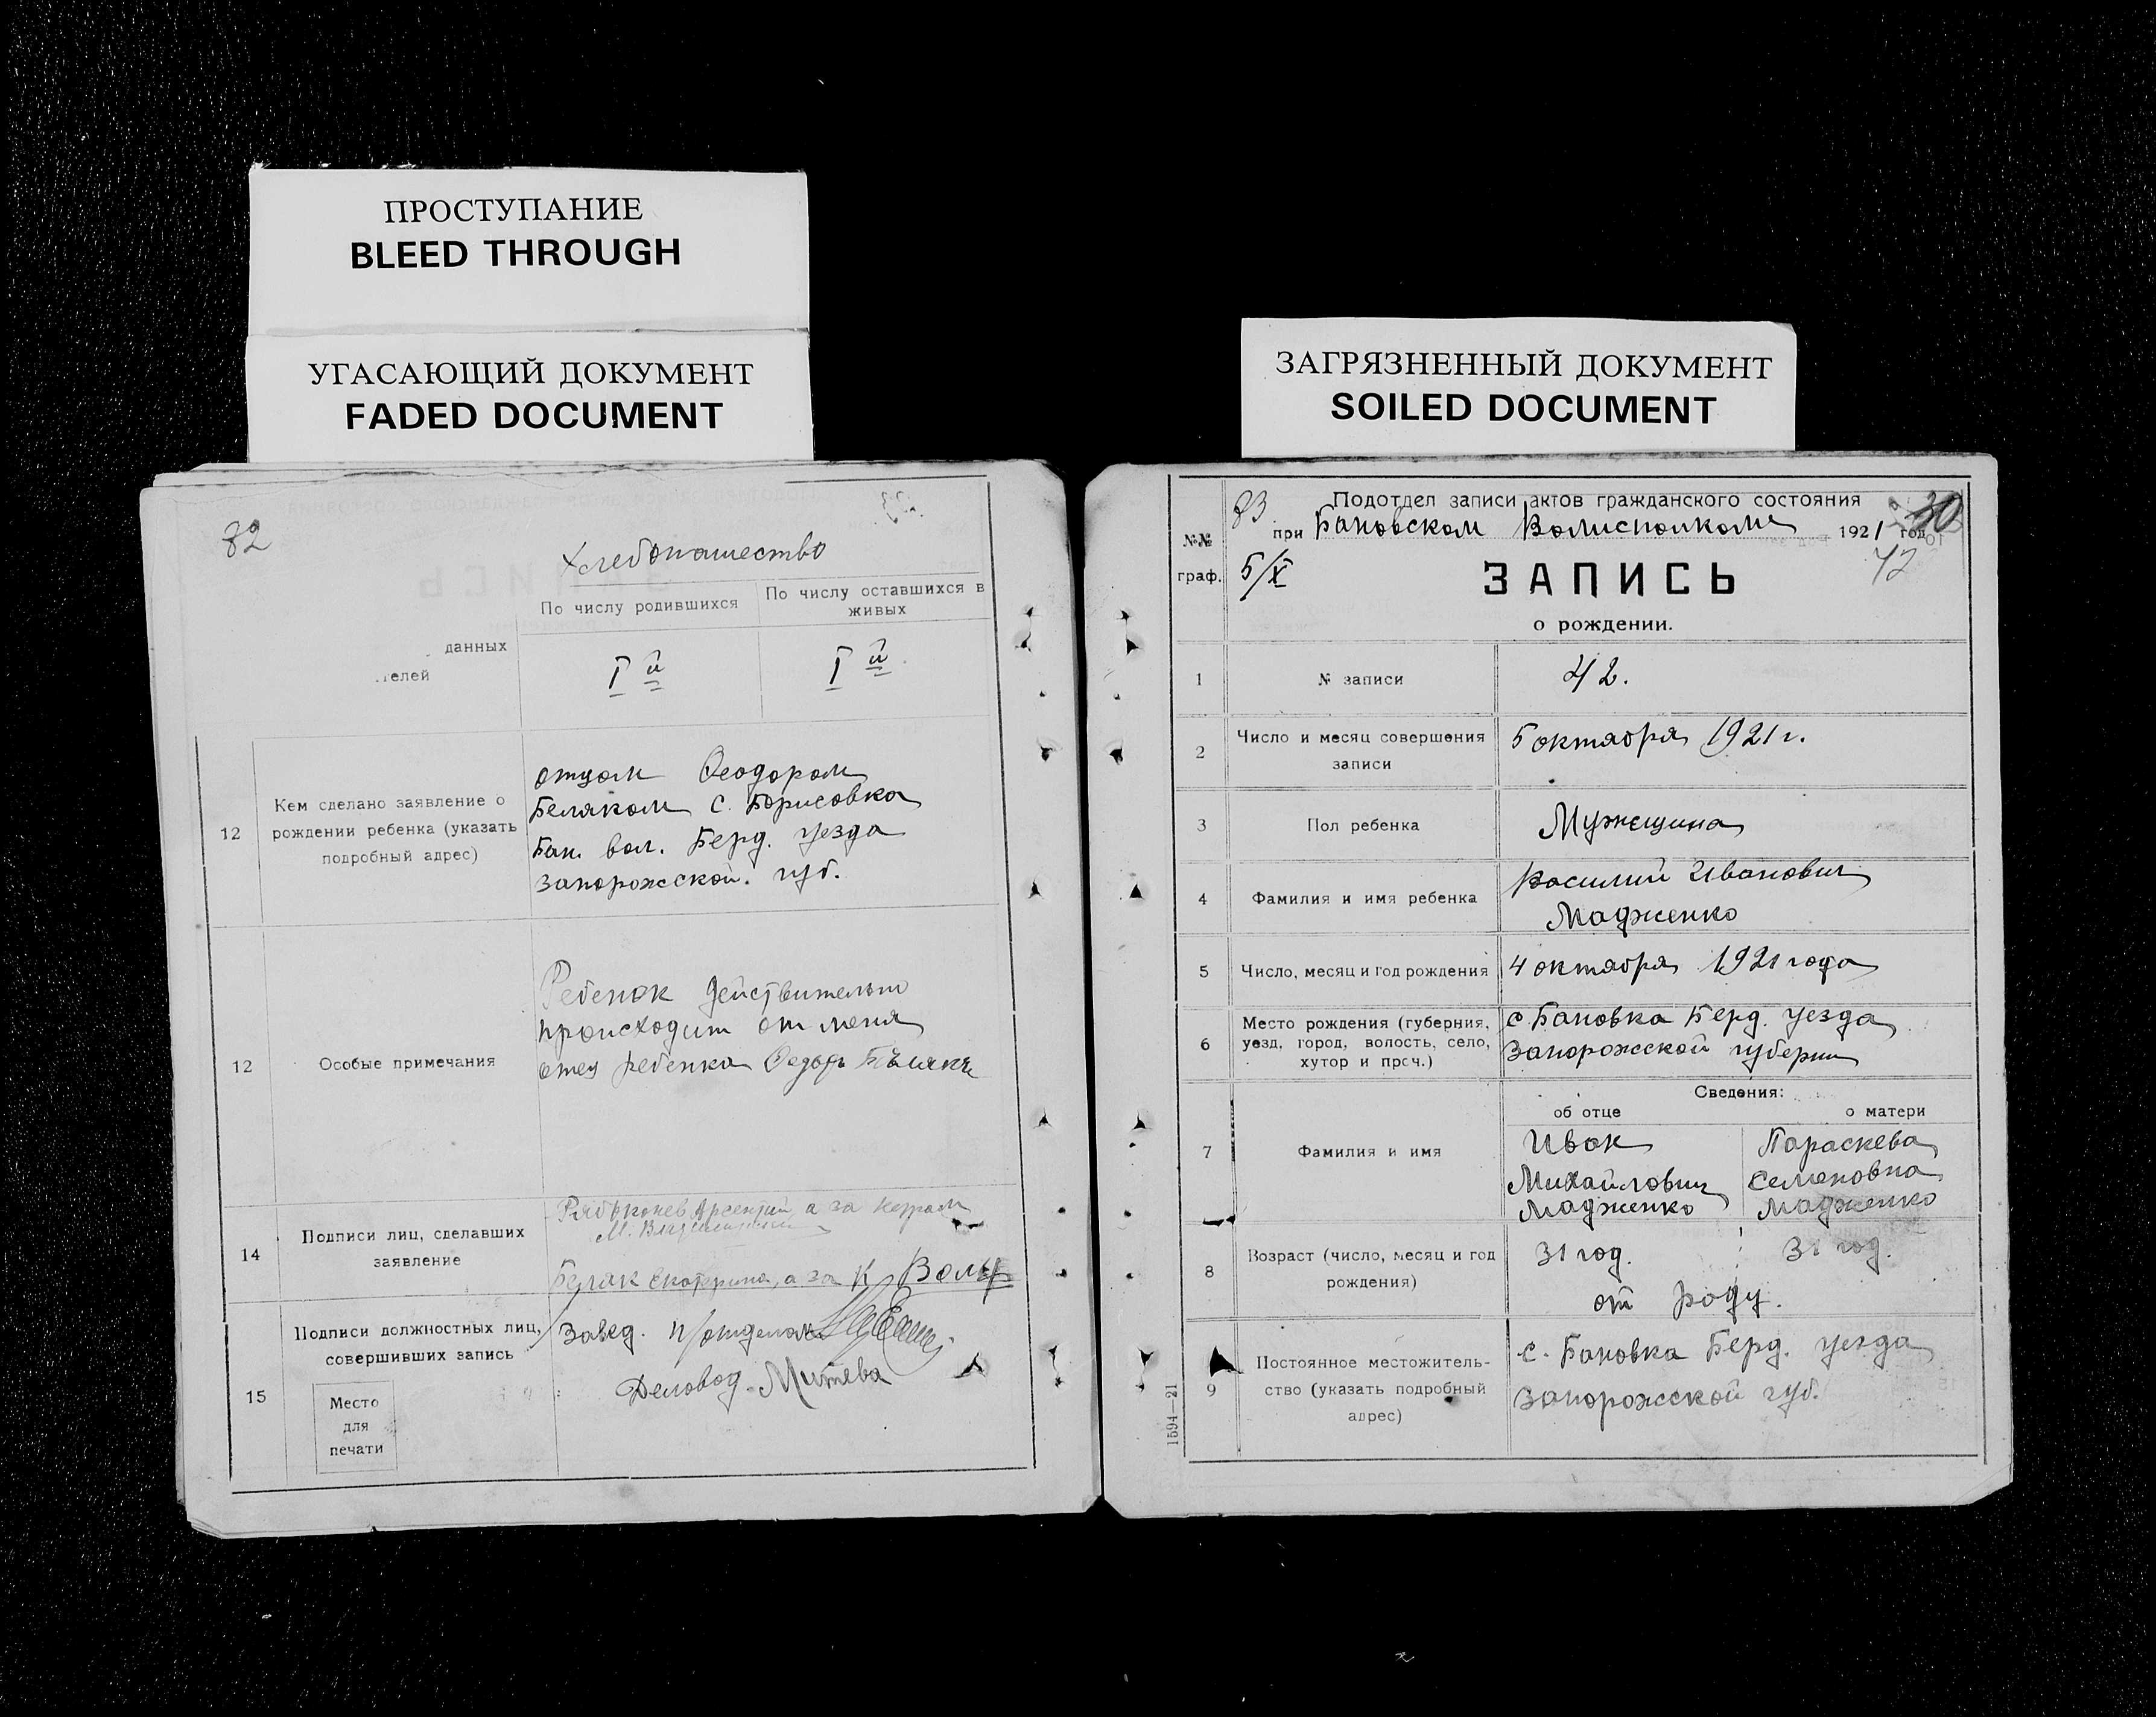 ПРОСТУПАНИЕ
BLEED THROUGH
УГАСАЮЩИЙ ДОКУМЕНТ
FADED DOCUMENT
82
Хлебопашество
По числу родившихся
По числу оставшихся в
живых
данных
телей
I й
I й
12
Кем сделано заявление о
рождении ребенка (указать
подробный адрес)
отцом Феодором
Беляком с. Борисовка
Бан. вол. Берд. уезда
Запорожской. губ.
12
Особые примечания
Ребенок действительно
происходит от меня
отец ребенка Федоръ Бѣлякъ
14
Подписи лиц, сделавших
заявление
Арсентий, а за
Беляк Екатерина, а за
15
Подписи должностных лиц,
совершивших запись
Место
для
печати
Завед. п/отделом
Деловод Митева
ЗАГРЯЗНЕННЫЙ ДОКУМЕНТ
SOILED DOCUMENT
№№
граф.
83
Подотдел записи актов гражданского состояния
при Бановском Волисполкоме 1921 год
30
42
5/X
ЗАПИСЬ
о рождении.
1
№ записи
42.
2
Число и месяц совершения
записи
5 октября 1921 г.
3
Пол ребенка
Мужещина
4
Фамилия и имя ребенка
Василий Иванович
Мадженко
5
Число, месяц и год рождения
4 октября 1921 года
6
Место рождения (губерния,
уезд, город, волость, село,
хутор и проч.)
с. Бановка Берд. уезда
Запорожской губернии
Сведения:
об отце
о матери
7
Фамилия и имя
Иван
Михайлович
Мадженко
Параскева
Семеновна
Мадженко
8
Возраст (число, месяц и год
рождения)
31 год.
31 год.
от роду.
9
Постоянное местожитель-
ство (указать подробный
адрес)
с. Бановка Берд. уезда
Запорожской губ.
1594—21